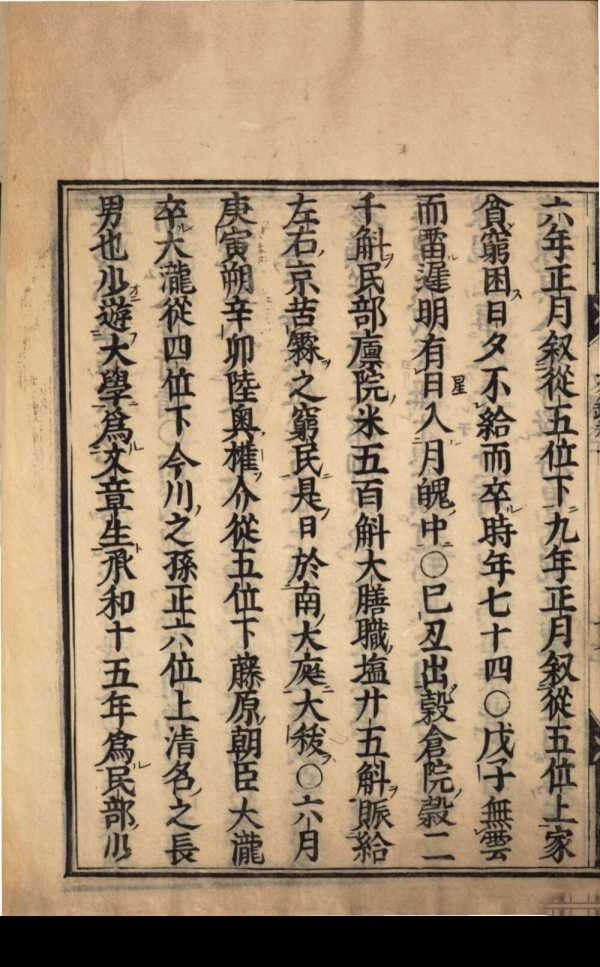 六年正月叙從五位下九年正月叙從五位上家
貧窮困日夕不給而卒時年七十四○戊子無雲
而雷遲明有日星入月魄中○己丑出穀倉院穀二
千斛民部廩院米五百斛大膳職塩廿五斛賑給
左右京苦霖之窮民是日於南大庭大秡○六月
庚寅朔辛卯陸奥權介從五位下藤原朝臣大瀧
卒大瀧從四位下今川之孫正六位上清名之長
男也少遊大學爲文章生承和十五年爲民部少